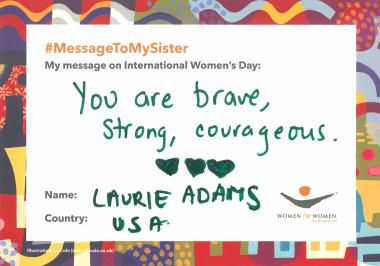 #MessageToMySister
My message on International Women's Day:
You are brave,
strong, courageous.
Name: LAURIE ADAMS
Country: USA
WOMEN for WOMEN
international